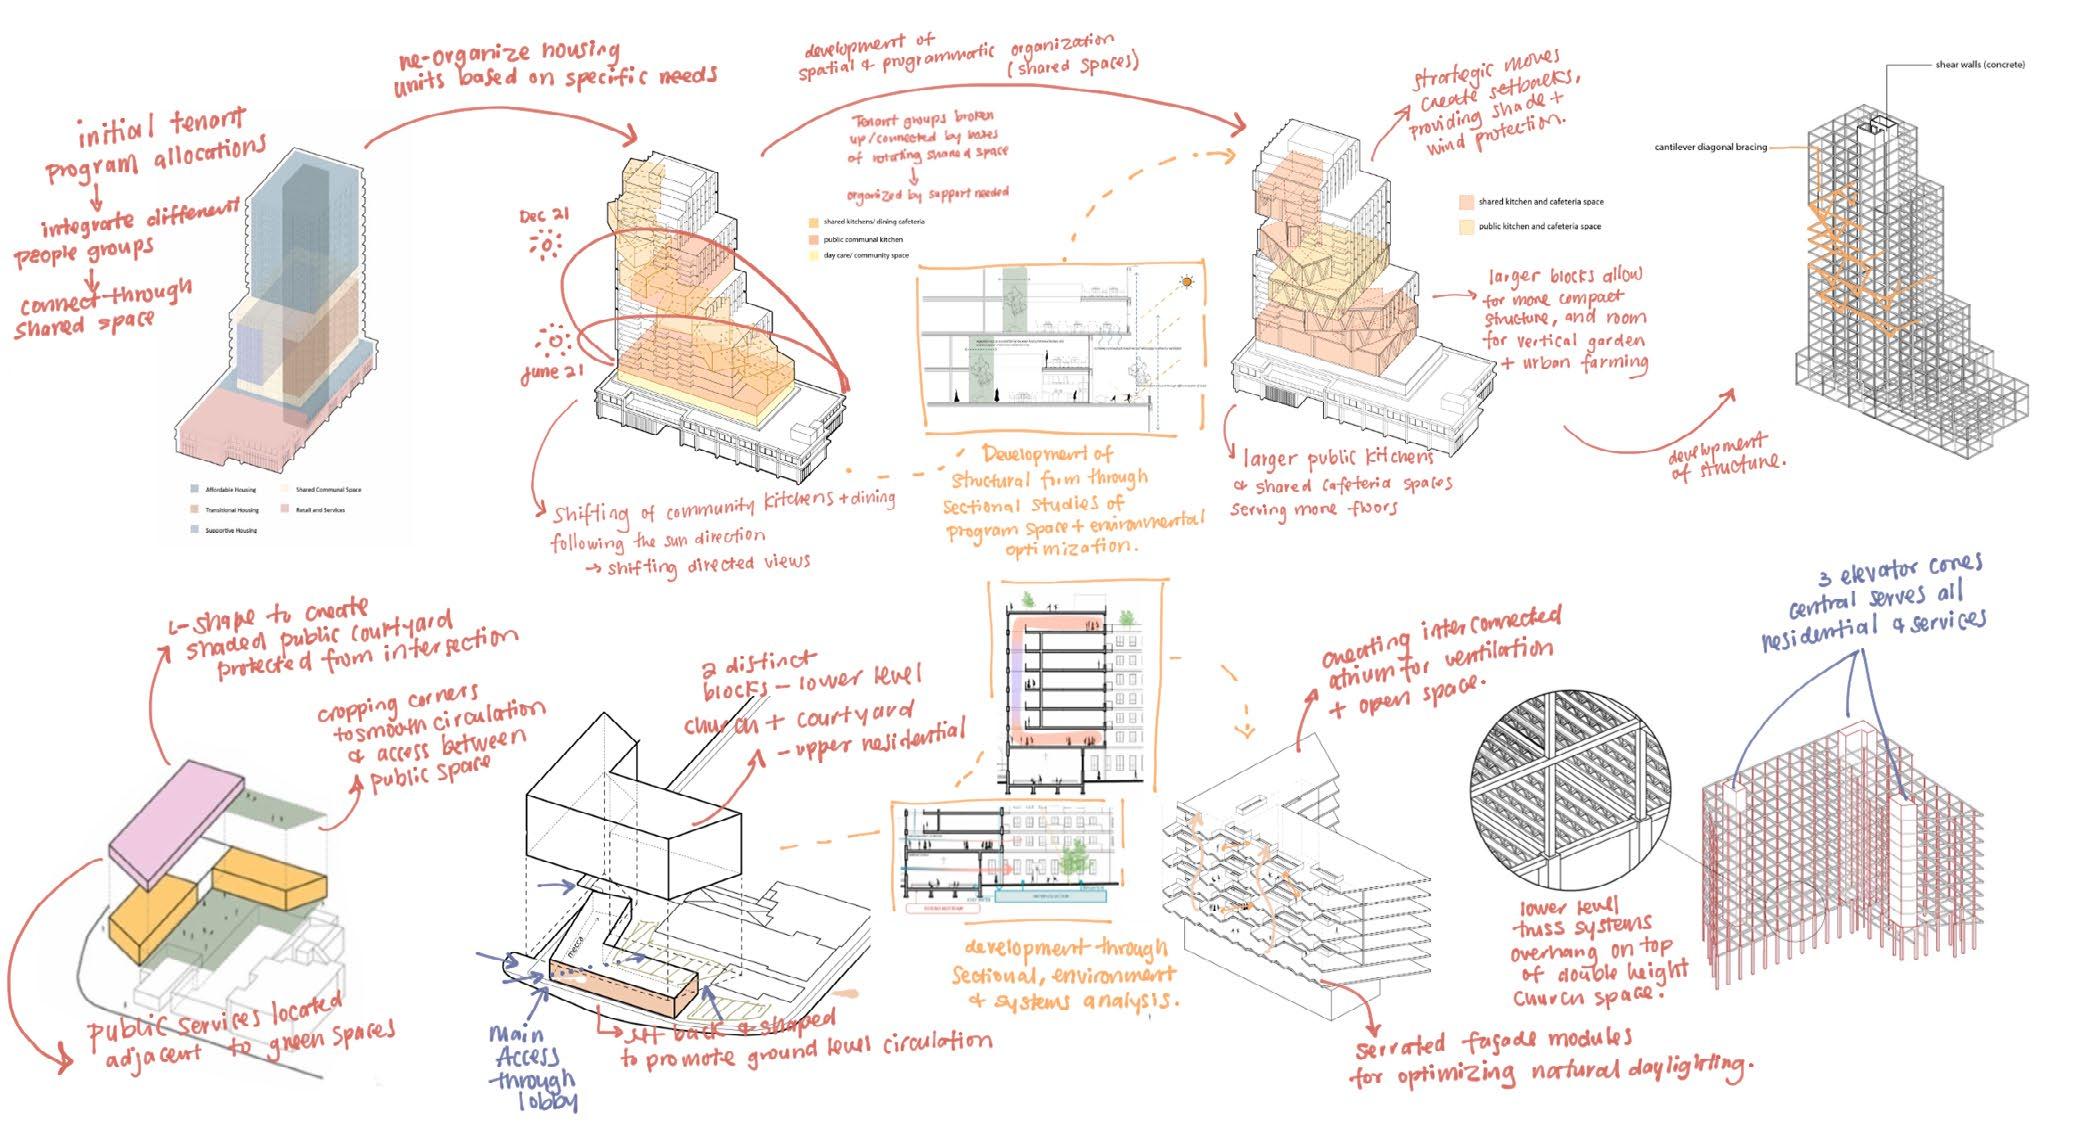 initial tenant
program allocations
integrate different
people groups
connect through
shared space
Affordable Housing
Shared Communal Space
Transitional Housing
Retail and Services
Supportive Housing
re-organize housing
units based on specific needs
Dec 21
June 21
shifting of community kitchens + dining
following the sun direction
→ shifting directed views
development of
spatial & programmatic organization
(shared spaces)
Tenant groups broken
up/connected by bases
of rotating shared space
organized by support needed
shared kitchens/ dining cafeteria
public communal kitchen
day care/ community space
Development of
structural form through
sectional studies of
program space + environmental
optimization.
strategic moves
create setbacks,
providing shade +
wind protection.
shared kitchen and cafeteria space
public kitchen and cafeteria space
larger blocks allow
for more compact
structure, and room
for vertical garden
+ urban farming
larger public kitchens
& shared cafeteria spaces
serving more floors
development
of structure.
shear walls (concrete)
cantilever diagonal bracing
L-shape to create
shaded public courtyard
protected from intersection
cropping corners
to smooth circulation
& access between
public space
public services located
adjacent to green spaces
2 distinct
blocks - lower level
church + courtyard
- upper residential
mecca
Main
Access
through
lobby
set back & shaped
to promote ground level circulation
development through
sectional, environment
& systems analysis.
creating interconnected
atrium for ventilation
+ open space.
serrated façade modules
for optimizing natural daylighting.
3 elevator cores
central serves all
residential & services
lower level
truss systems
overhang on top
of double height
church space.